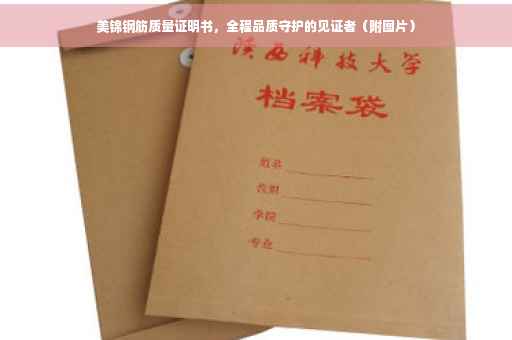 美锦钢筋质量证明书，全程品质守护的见证者（附图片）
陕西科技大学
档案袋
姓名
学院
专业